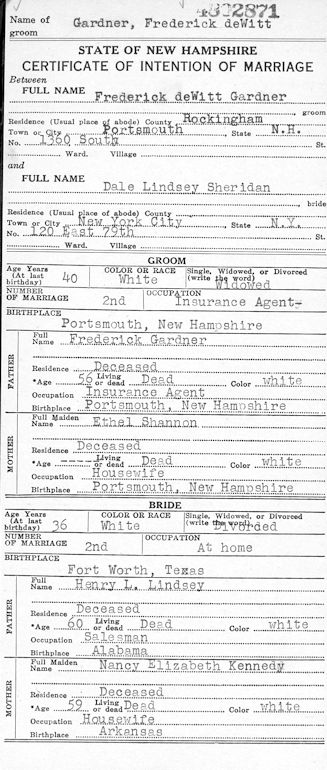 4302871
Name of groom Gardner, Frederick deWitt
STATE OF NEW HAMPSHIRE
CERTIFICATE OF INTENTION OF MARRIAGE
Between
FULL NAME
Frederick deWitt Gardner
groom
Residence (Usual place of abode) County Rockingham
Town or City Portsmouth, State N.H.
No. 1360 South St.
Ward. Village
and
FULL NAME
Dale Lindsey Sheridan
bride
Residence (Usual place of abode) County
Town or City New York City, State N.Y.
No. 120 East 79th St.
Ward. Village
GROOM
Age Years (At last birthday) 40 COLOR OR RACE White Single, Widowed, or Divorced (write the word) Widowed
NUMBER OF MARRIAGE 2nd OCCUPATION Insurance Agent-
BIRTHPLACE
Portsmouth, New Hampshire
FATHER
Full Name Frederick Gardner
Residence Deceased
*Age 56 Living or dead Dead Color white
Occupation Insurance Agent
Birthplace Portsmouth, New Hampshire
MOTHER
Full Maiden Name Ethel Shannon
Residence Deceased
*Age ----- Living or dead Dead Color white
Occupation Housewife
Birthplace Portsmouth, New Hampshire
BRIDE
Age Years (At last birthday) 36 COLOR OR RACE White Single, Widowed, or Divorced (write the word) Divorded
NUMBER OF MARRIAGE 2nd OCCUPATION At home
BIRTHPLACE
Fort Worth, Texas
FATHER
Full Name Henry L. Lindsey
Residence Deceased
*Age 60 Living or dead Dead Color white
Occupation Salesman
Birthplace Alabama
MOTHER
Full Maiden Name Nancy Elizabeth Kennedy
Residence Deceased
*Age 59 Living or dead Dead Color white
Occupation Housewife
Birthplace Arkansas